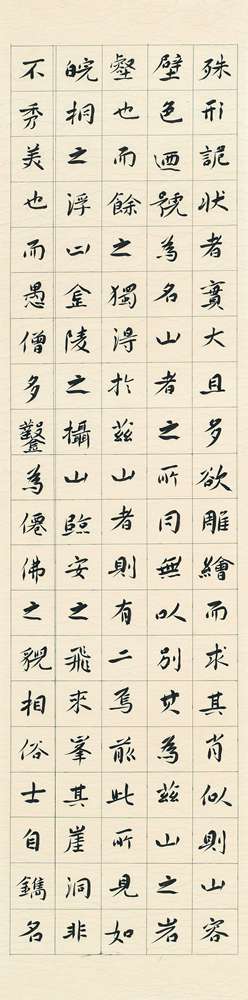 殊形詭狀者實大且多欲雕繪而求其肖似則山容
壁色迺號為名山者之所同無以別其為茲山之岩
壑也而餘之獨得於茲山者則有二焉前此所見如
皖桐之浮山金陵之攝山臨安之飛來峯其崖洞非
不秀美也而愚僧多鑿為僊佛之貌相俗士自鐫名